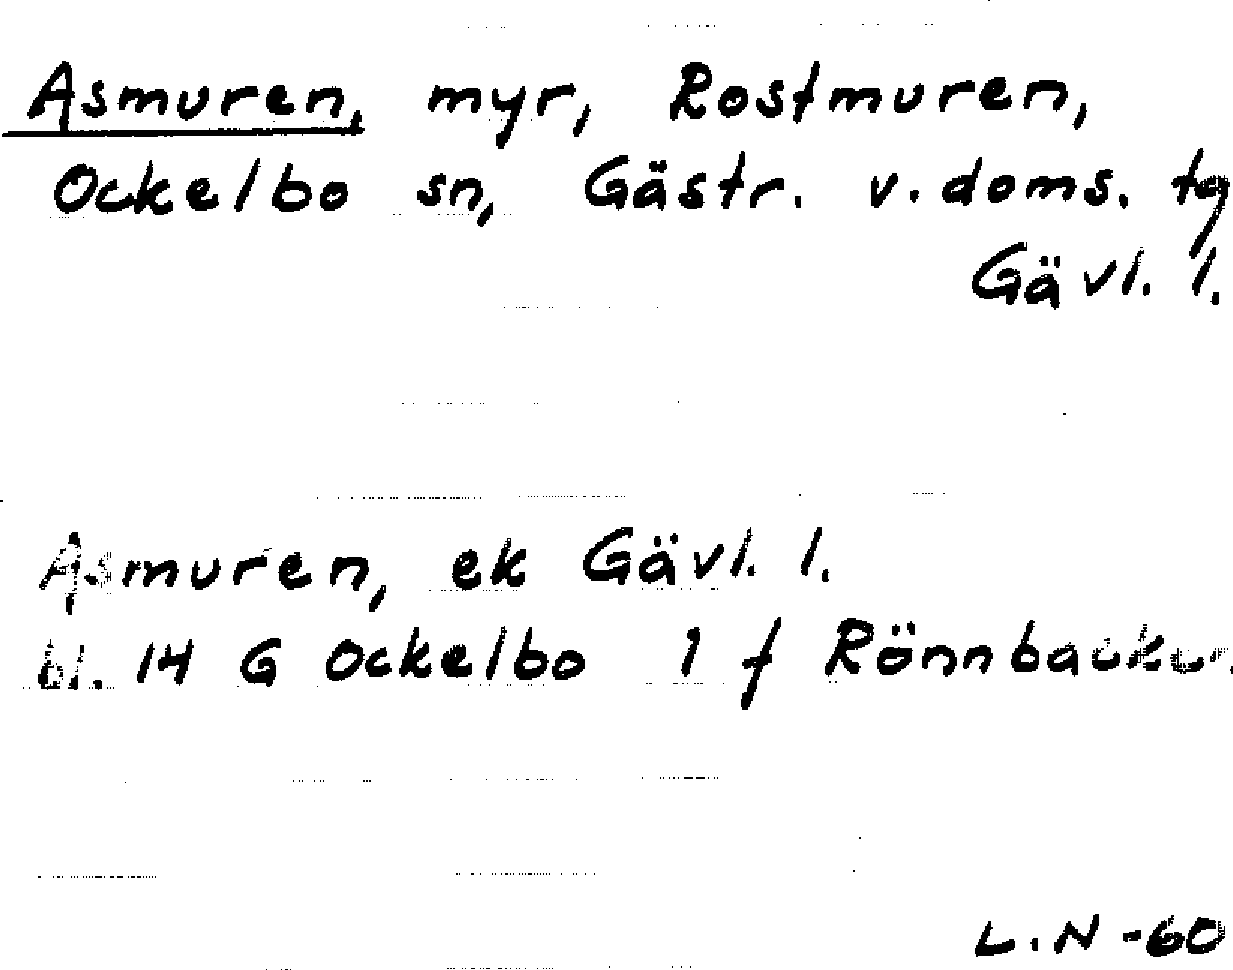 Asmuren, myr, Rostmuren,
Ockelbo sn, Gästr. v. doms. tg
Gävl. l.
Asmuren, ek Gävl. l.
bl. 14 G Ockelbo 1 f
L.N -60